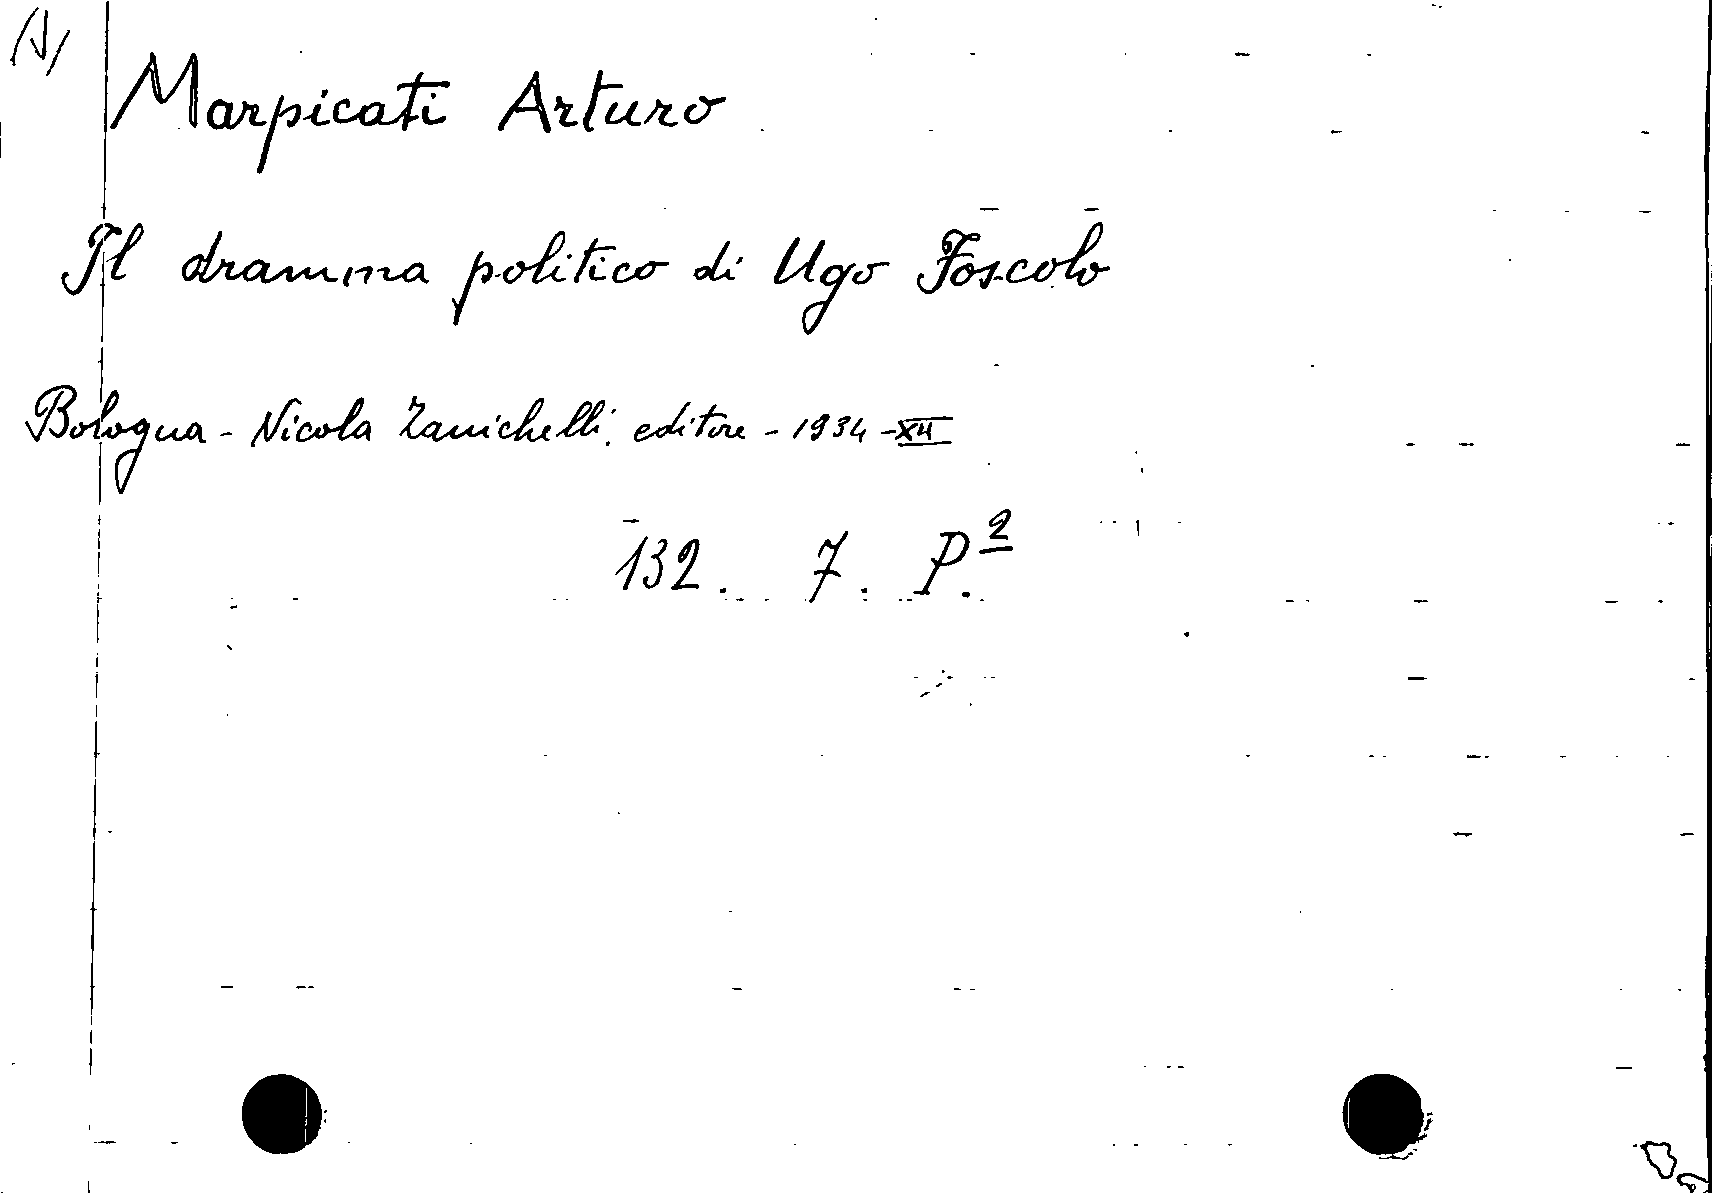 Marpicati Arturo
Il dramma politico di Ugo Foscolo
Bologna - Nicola Zanichelli. editore - 1934 - XII
132. 7. P.2